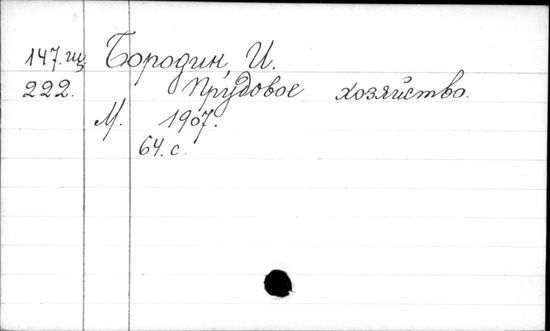 147.щ Бородин, И.
222. Прудовое хозяйство.
М. 1907.
64. с.